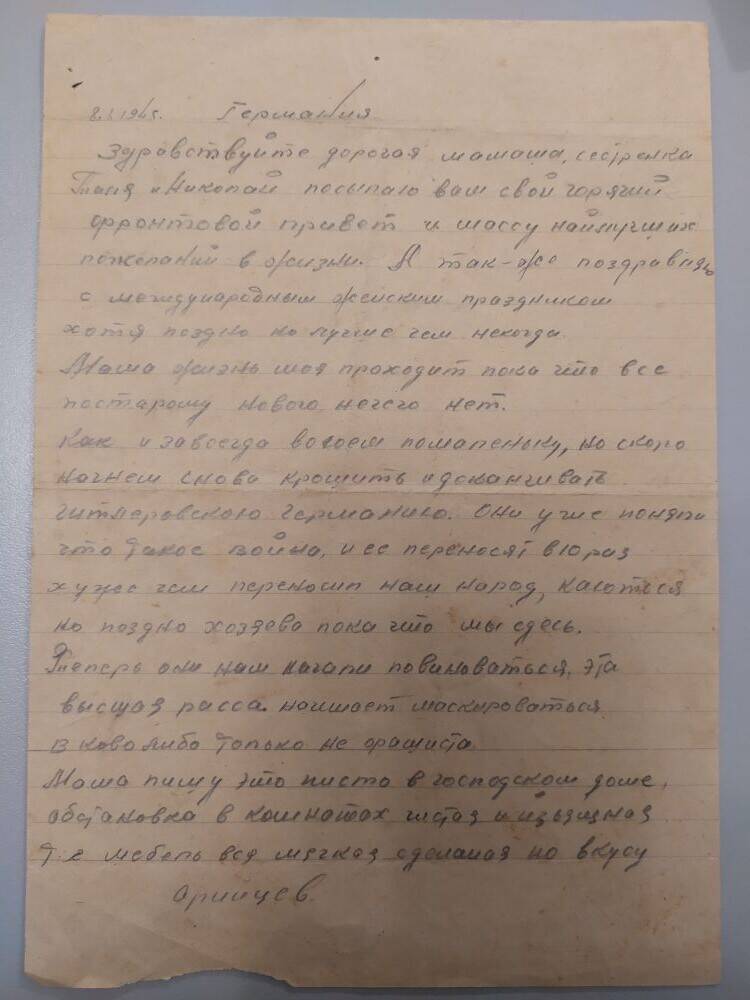 1945г. Германия
Здравствуйте дорогая мамаша, сестренка
Таня и Николай посылаю вам свой горячий
фронтовой привет и массу наилучших
пожеланий в жизни. А так-же поздравляю
с международным женским праздником
хотя поздно но лучше чем некогда.
Мама жизнь моя проходит пока что все
постарому нового нечего нет.
Как и завсегда воюем помаленьку, но скоро
начнем снова крошить и доканчивать
гитлеровскою германию. Они уже поняли
что такое война, и ее переносят в 10 раз
хуже чем переносил наш народ, каються
но поздно хозяева пока что мы здесь.
Теперь они нам начали повиноваться, эта
высшая расса начинает маскироваться
в ково либо только не фашиста.
Мама пишу это писто в господском доме,
обстановка в комнатах чистая и изьящная
т.е мебель вся мягкая сделаная по вкусу
арийцев.